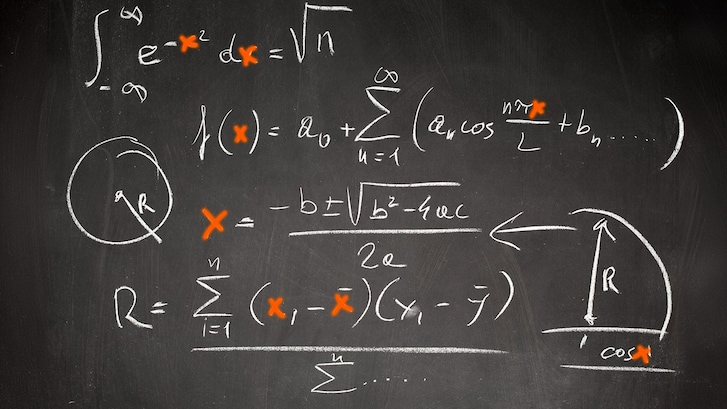 ∫_{-∞}^{∞} e^{-x²} dx = √n
f(x) = a₀ + ∑_{n=1}^{∞} (aₙ cos nπx/L + bₙ ......)
R
x = (-b ± √(b² - 4ac)) / 2a
R
R = ∑_{i=1}^{n} (x₁ - x̄)(y₁ - ȳ) / ∑^{n} .....
cos x